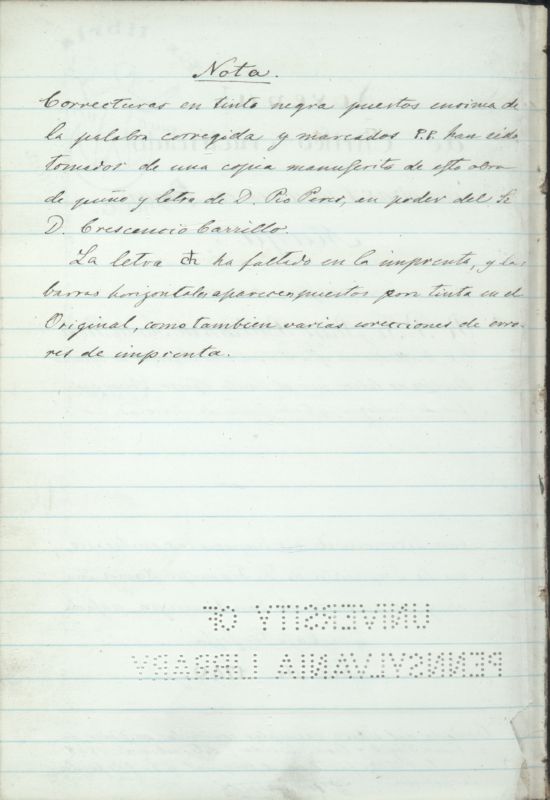 Nota.
Correcturas en tinta negra puestos encima de
la palabra corregida y marcados P.P. han sido
tomados de una copia manuscrito de esta obra
de puño y letra de D. Pio Perez, en poder del Sr
D. Crescencio Carrillo.
La letra ꜩ ha faltado en la imprenta, y las
barras horizontales aparecen puestos con tinta en el
Original, como tambien varias correcciones de erro-
res de imprenta.
UNIVERSITY OF
PENNSYLVANIA LIBRARY